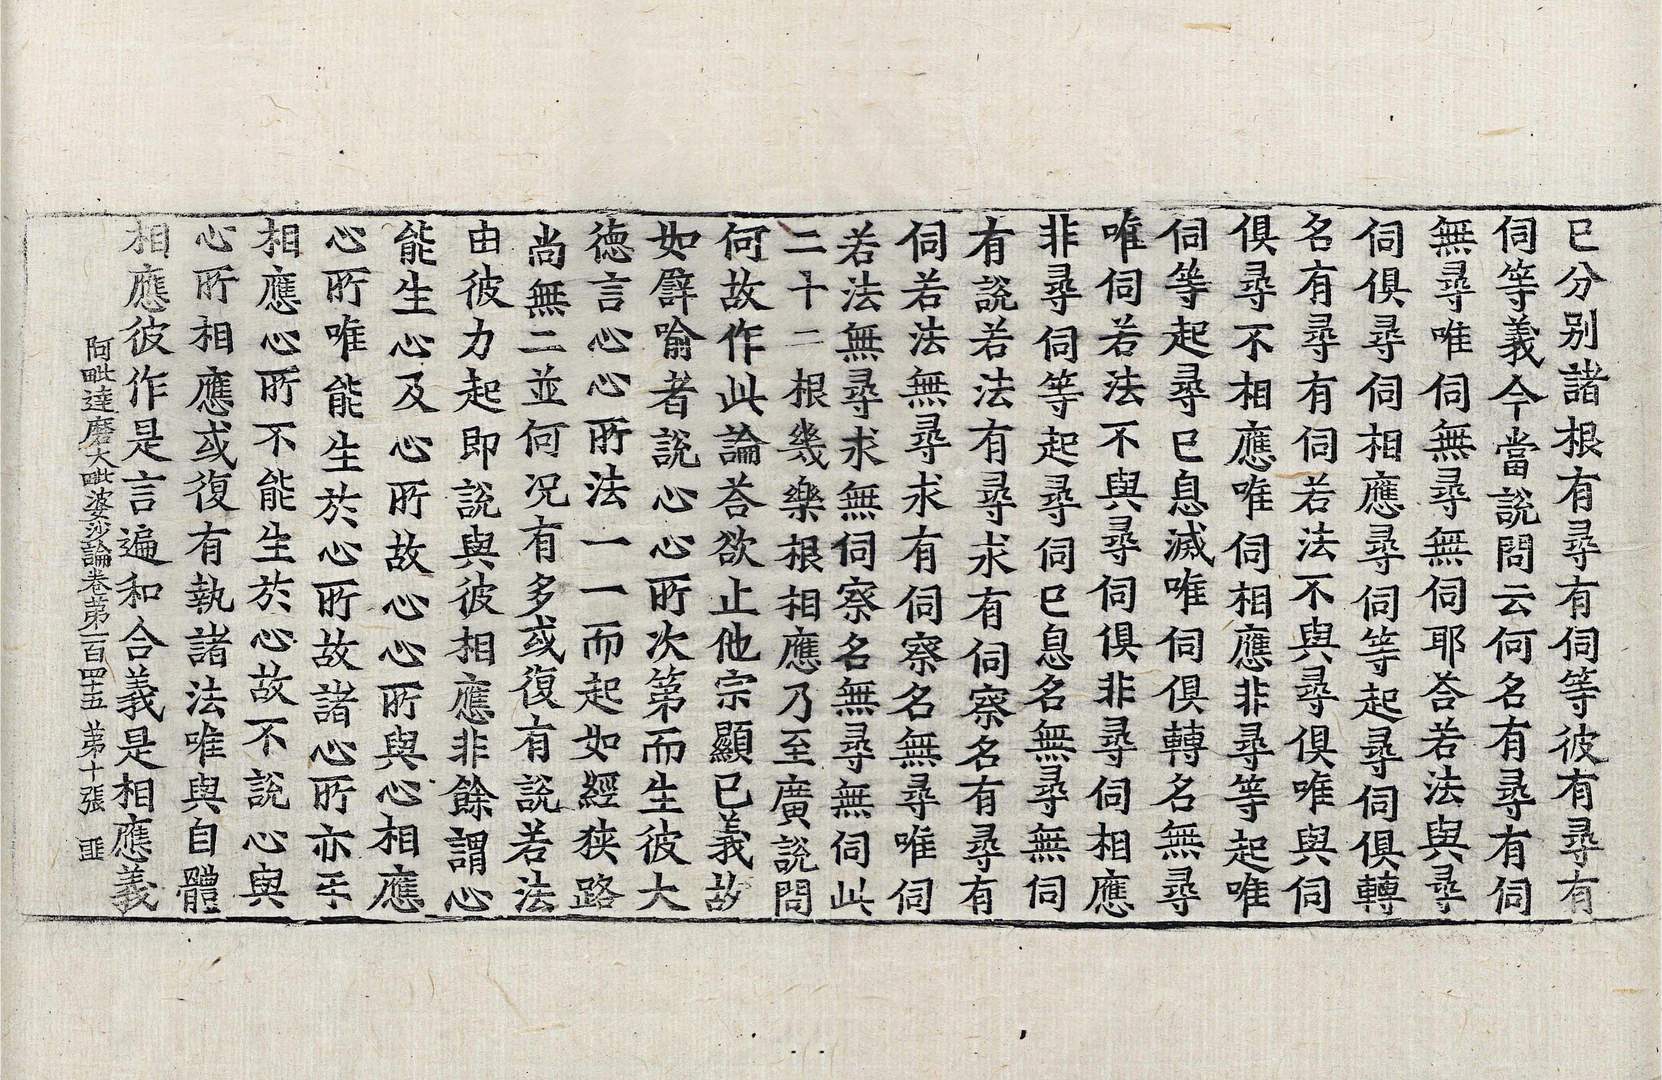 已分別諸根有尋有伺等彼有尋有
伺等義今當說問云何名有尋有伺
無尋唯伺無尋無伺耶荅若法與尋
伺俱尋伺相應尋伺等起尋伺俱轉
名有尋有伺若法不與尋俱唯與伺
俱尋不相應唯伺相應非尋等起唯
伺等起尋已息滅唯伺俱轉名無尋
唯伺若法不與尋伺俱非尋伺相應
非尋伺等起尋伺已息名無尋無伺
有說若法有尋求有伺察名有尋有
伺若法無尋求有伺察名無尋唯伺
若法無尋求無伺察名無尋無伺此
二十二根幾樂根相應乃至廣說問
何故作此論荅欲止他宗顯已義故
如譬喻者說心心所次第而生彼大
德言心心所法一一而起如經狹路
尚無二並何况有多或復有說若法
由彼力起即說與彼相應非餘謂心
能生心及心所故心心所與心相應
心所唯能生於心所故諸心所亦手
相應心所不能生於心故不說心與
心所相應或復有執諸法唯與自體
相應彼作是言遍和合義是相應義
阿毗達磨大毗婆沙論卷第一百四十五 第十張 匪